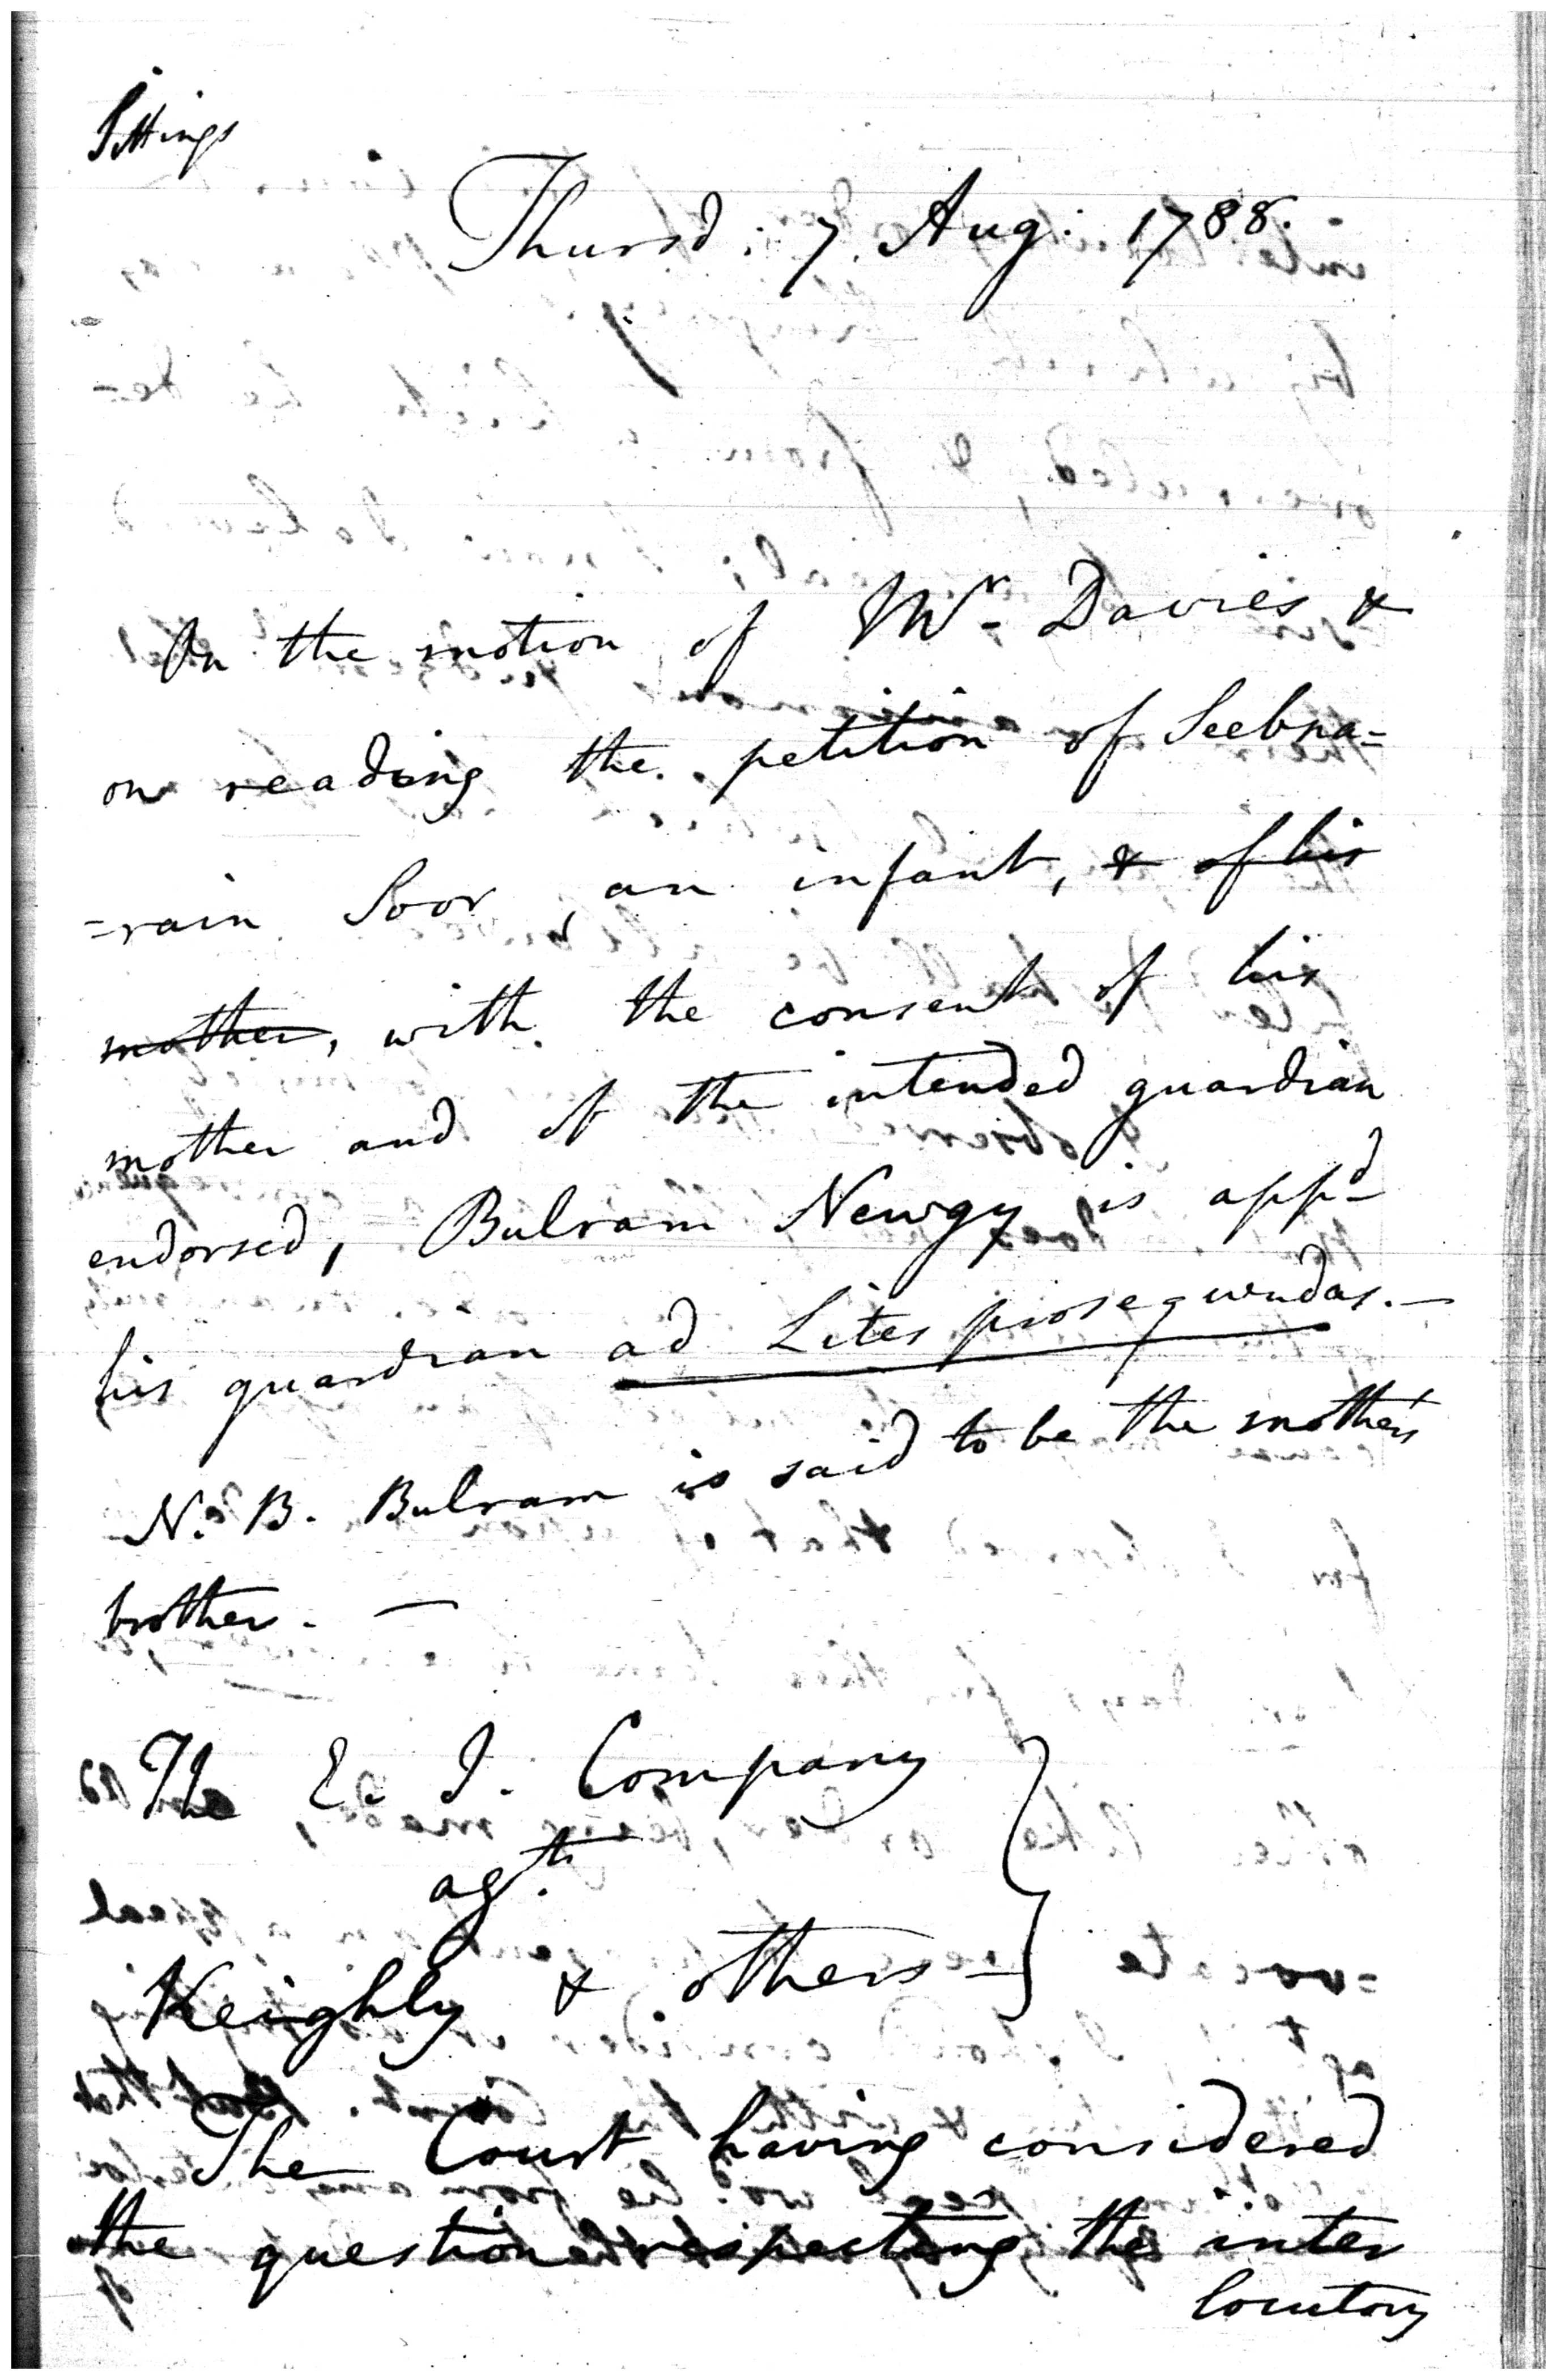 Sittings
Thursd: 7. Aug: 1788.
On the motion of Mr. Davies &
on reading the petition of Seebna=
=rain Soor, an infant, & of his
mother, with the consent of his
mother and of the intended guardian
endorsed, Bulram Newgy is appd
his guardian ad Lites prosequendas. —
N. B. Bulram is said to be the mother's
brother. —
The E. I. Company
agt.
Keighly & others
The Court having considered
the question respecting the inter
locutory